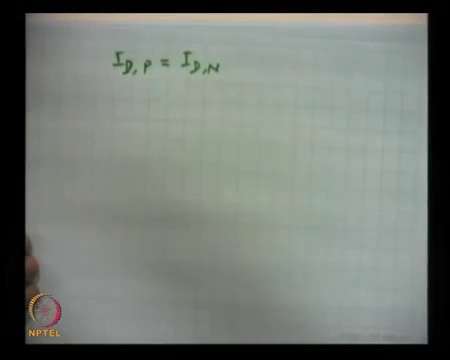 I_{D,P} = I_{D,N}
NPTEL